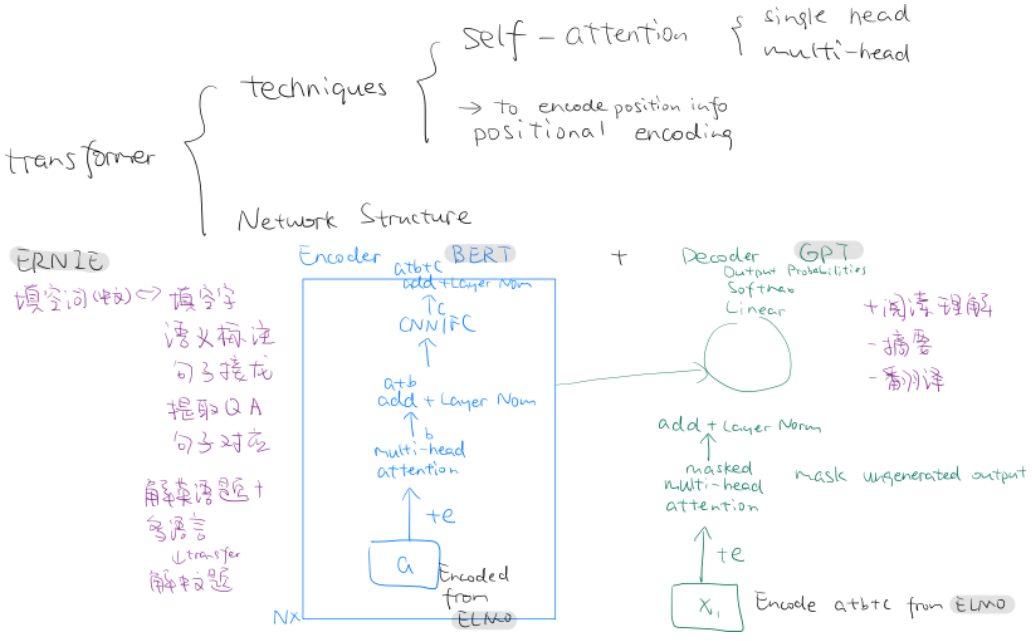 self-attention
single head
multi-head
techniques
→ to encode position info
positional encoding
transformer
Network Structure
ERNIE
填空词(中文)<-> 填空字
语义标注
句子接龙
提取QA
句子对应
解英语题+
多语言
↓transfer
解中文题
Encoder BERT
a+b+c
add+Layer Nom
↑c
CNN/FC
↑
a+b
add + Layer Nom
↑b
multi-head
attention
↑+e
a
Encoded
from
ELMO
Nx
+
Decoder GPT
Output Probabilities
Softmax
Linear
+阅读理解
-摘要
-翻译
add + Layer Norm
↑
masked
multi-head
attention
mask ungenerated output
↑+e
X₁
Encode a+b+c from ELMO